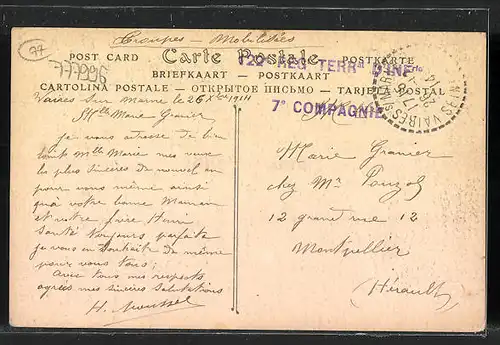 77
Troupes - Mobilisées
POST CARD Carte Postale POSTKARTE
122e REG. TERR. D'INFrie
BRIEFKAART - POSTKAART
CARTOLINA POSTALE - ОТКРЫТОЕ ПИСЬМО - TARJETA POSTAL
7e COMPAGNIE
VAIRES
Vaires sur Marne le 26 Xbre 1914
Mlle Marie Granier
je vous adresse de bien
loin Mlle Marie mes vœux
les plus sincères du nouvel an
pour vous même ainsi
qu'à votre bonne Maman
et votre frère Henri
Santé toujours parfaite
je vous en souhaite de même
pour vous tous;
avec tous mes respects
agréez mes sincères salutations
H.
Mlle
Marie Granier
chez Mr Pouzol
12 grand rue 12
Montpellier
(Hérault)